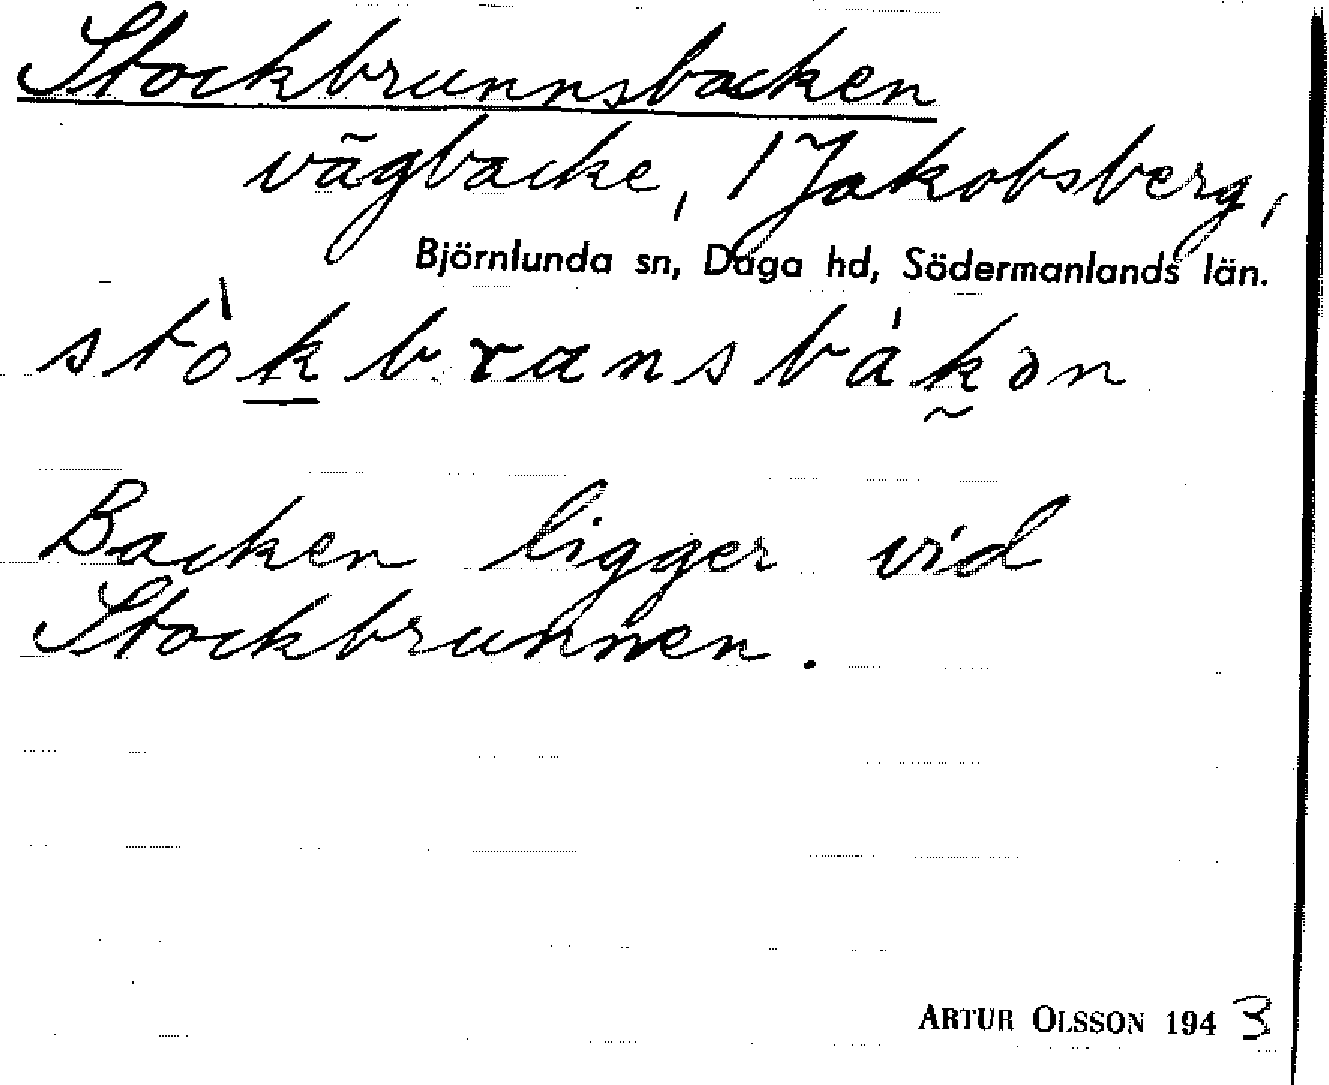 Stockbrunnsbacken
vägbacke, 1 Jakobsberg,
Björnlunda sn, Daga hd, Södermanlands län.
stòkbransbákən
Backen ligger vid
Stockbrunnen.
ARTUR OLSSON 1943